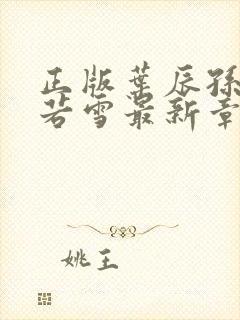 正版葉辰孫
若雪最新章
姚王